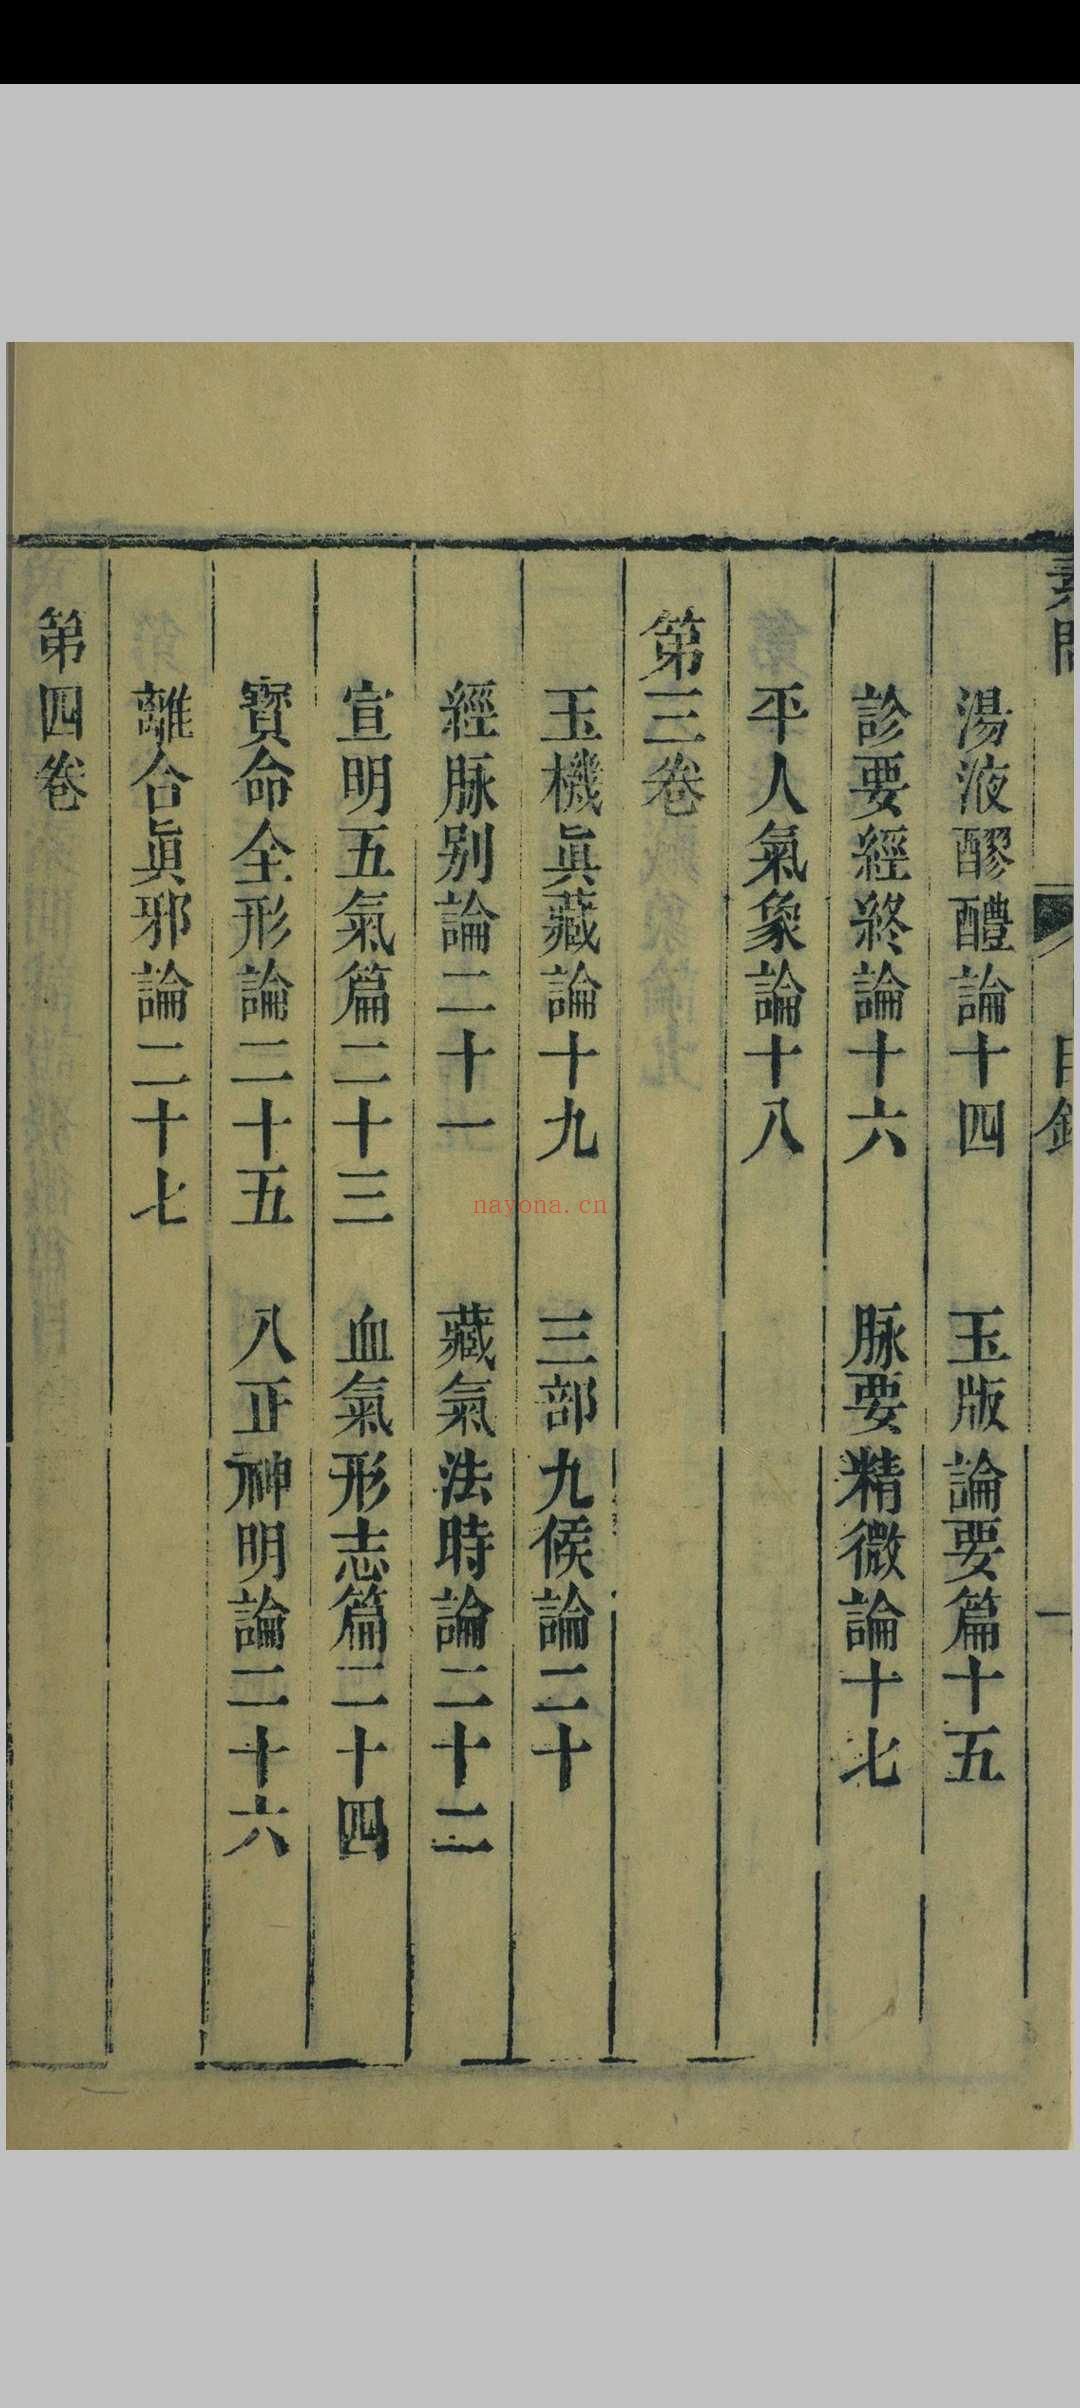 素問
目錄
一
湯液醪醴論十四 玉版論要篇十五
診要經終論十六 脉要精微論十七
平人氣象論十八
第三卷
玉機眞藏論十九 三部九候論二十
經脉别論二十一 藏氣法時論二十二
宣明五氣篇二十三 血氣形志篇二十四
寳命全形論二十五 八正神明論二十六
離合眞邪論二十七
第四卷
nayona.cn